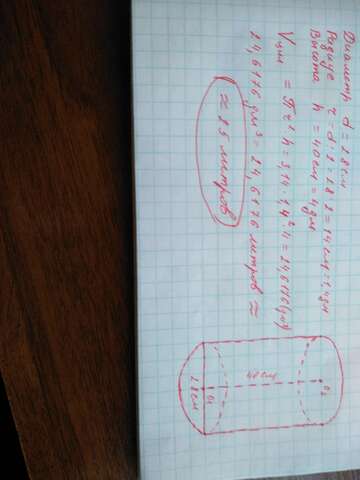 Диаметр d = 28 см
Радиус r = d : 2 = 28 : 2 = 14 см = 1,4 дм
Высота h = 40 см = 4 дм
Vцил = πr²·h = 3,14·1,4²·4 = 24,6176 (дм³)
24,6176 дм³ = 24,6176 литров ≈
≈ 25 литров
O₂
40 см
O₁
28 см